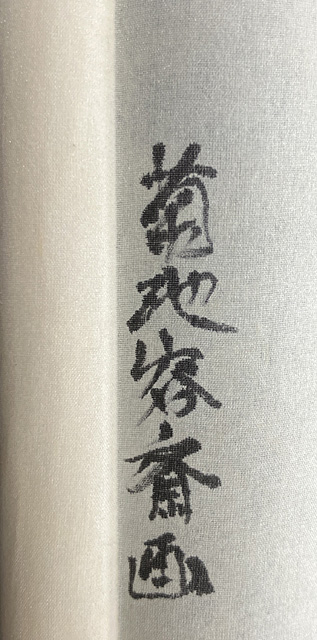 菊池容斎画